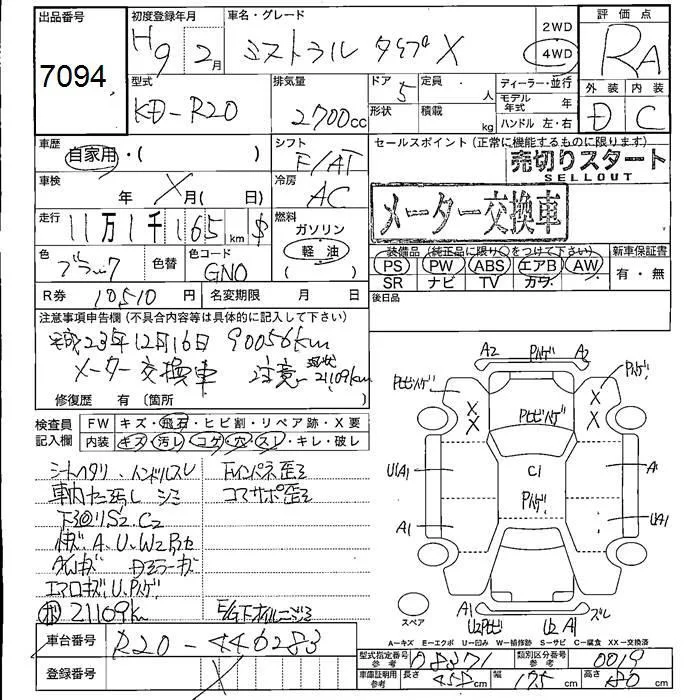 出品番号
7094
初度登録年月
H9 2月
車名・グレード
ミストラル タイプX
2WD
4WD
評価点
RA
外装 内装
D C
型式
KD-R20
排気量
2700cc
ドア
5
形状
定員
人
積載
kg
ディーラー・並行
モデル年式 年
ハンドル 左・右
車歴
自家用・( )
シフト
F/AT
セールスポイント (正常に機能するものに限ります)
売切りスタート
SELLOUT
車検
年 X月( 日)
冷房
AC
メーター交換車
走行
11万1千165km $
燃料
ガソリン
(軽油)
色
ブラック
色替
色コード
GNO
装備品 (純正品に限り〇をつけて下さい)
PS PW ABS エアB AW
SR ナビ TV カワ
新車保証書
有・無
R券 10510円
名変期限 月 日
後日品
注意事項申告欄 (不具合内容等は具体的に記入して下さい)
平成23年12月16日 90056km
メーター交換車 注意 現状21109km
修復歴 有 〔箇所 〕
検査員記入欄
FW キズ・飛石・ヒビ割・リペア跡・X要
内装 キズ・汚レ・コゲ・穴・スレ・キレ・破レ
シートヘタリ・ハンドルスレ
車内 汚レ シミ
下回りS2.C2
A.U.W2
エアロキズ.U.ハゲ
21109km
Fインパネ歪ミ
コアサポ歪ミ
E/G下オイルニジミ
A2
A2
X
X
X
X
U1A1
A1
C1
A1
U1A1
A1
U2
U2 A1
ズレ
スペア
A-キズ E-エクボ U-凹み W-補修跡 S-サビ C-腐食 XX-交換済
車台番号
R20-446283
登録番号
X
型式指定番号 参考
08371
類別区分番号 参考
0019
車庫証明用 参考
長さ 455cm
幅 175cm
高さ 180cm